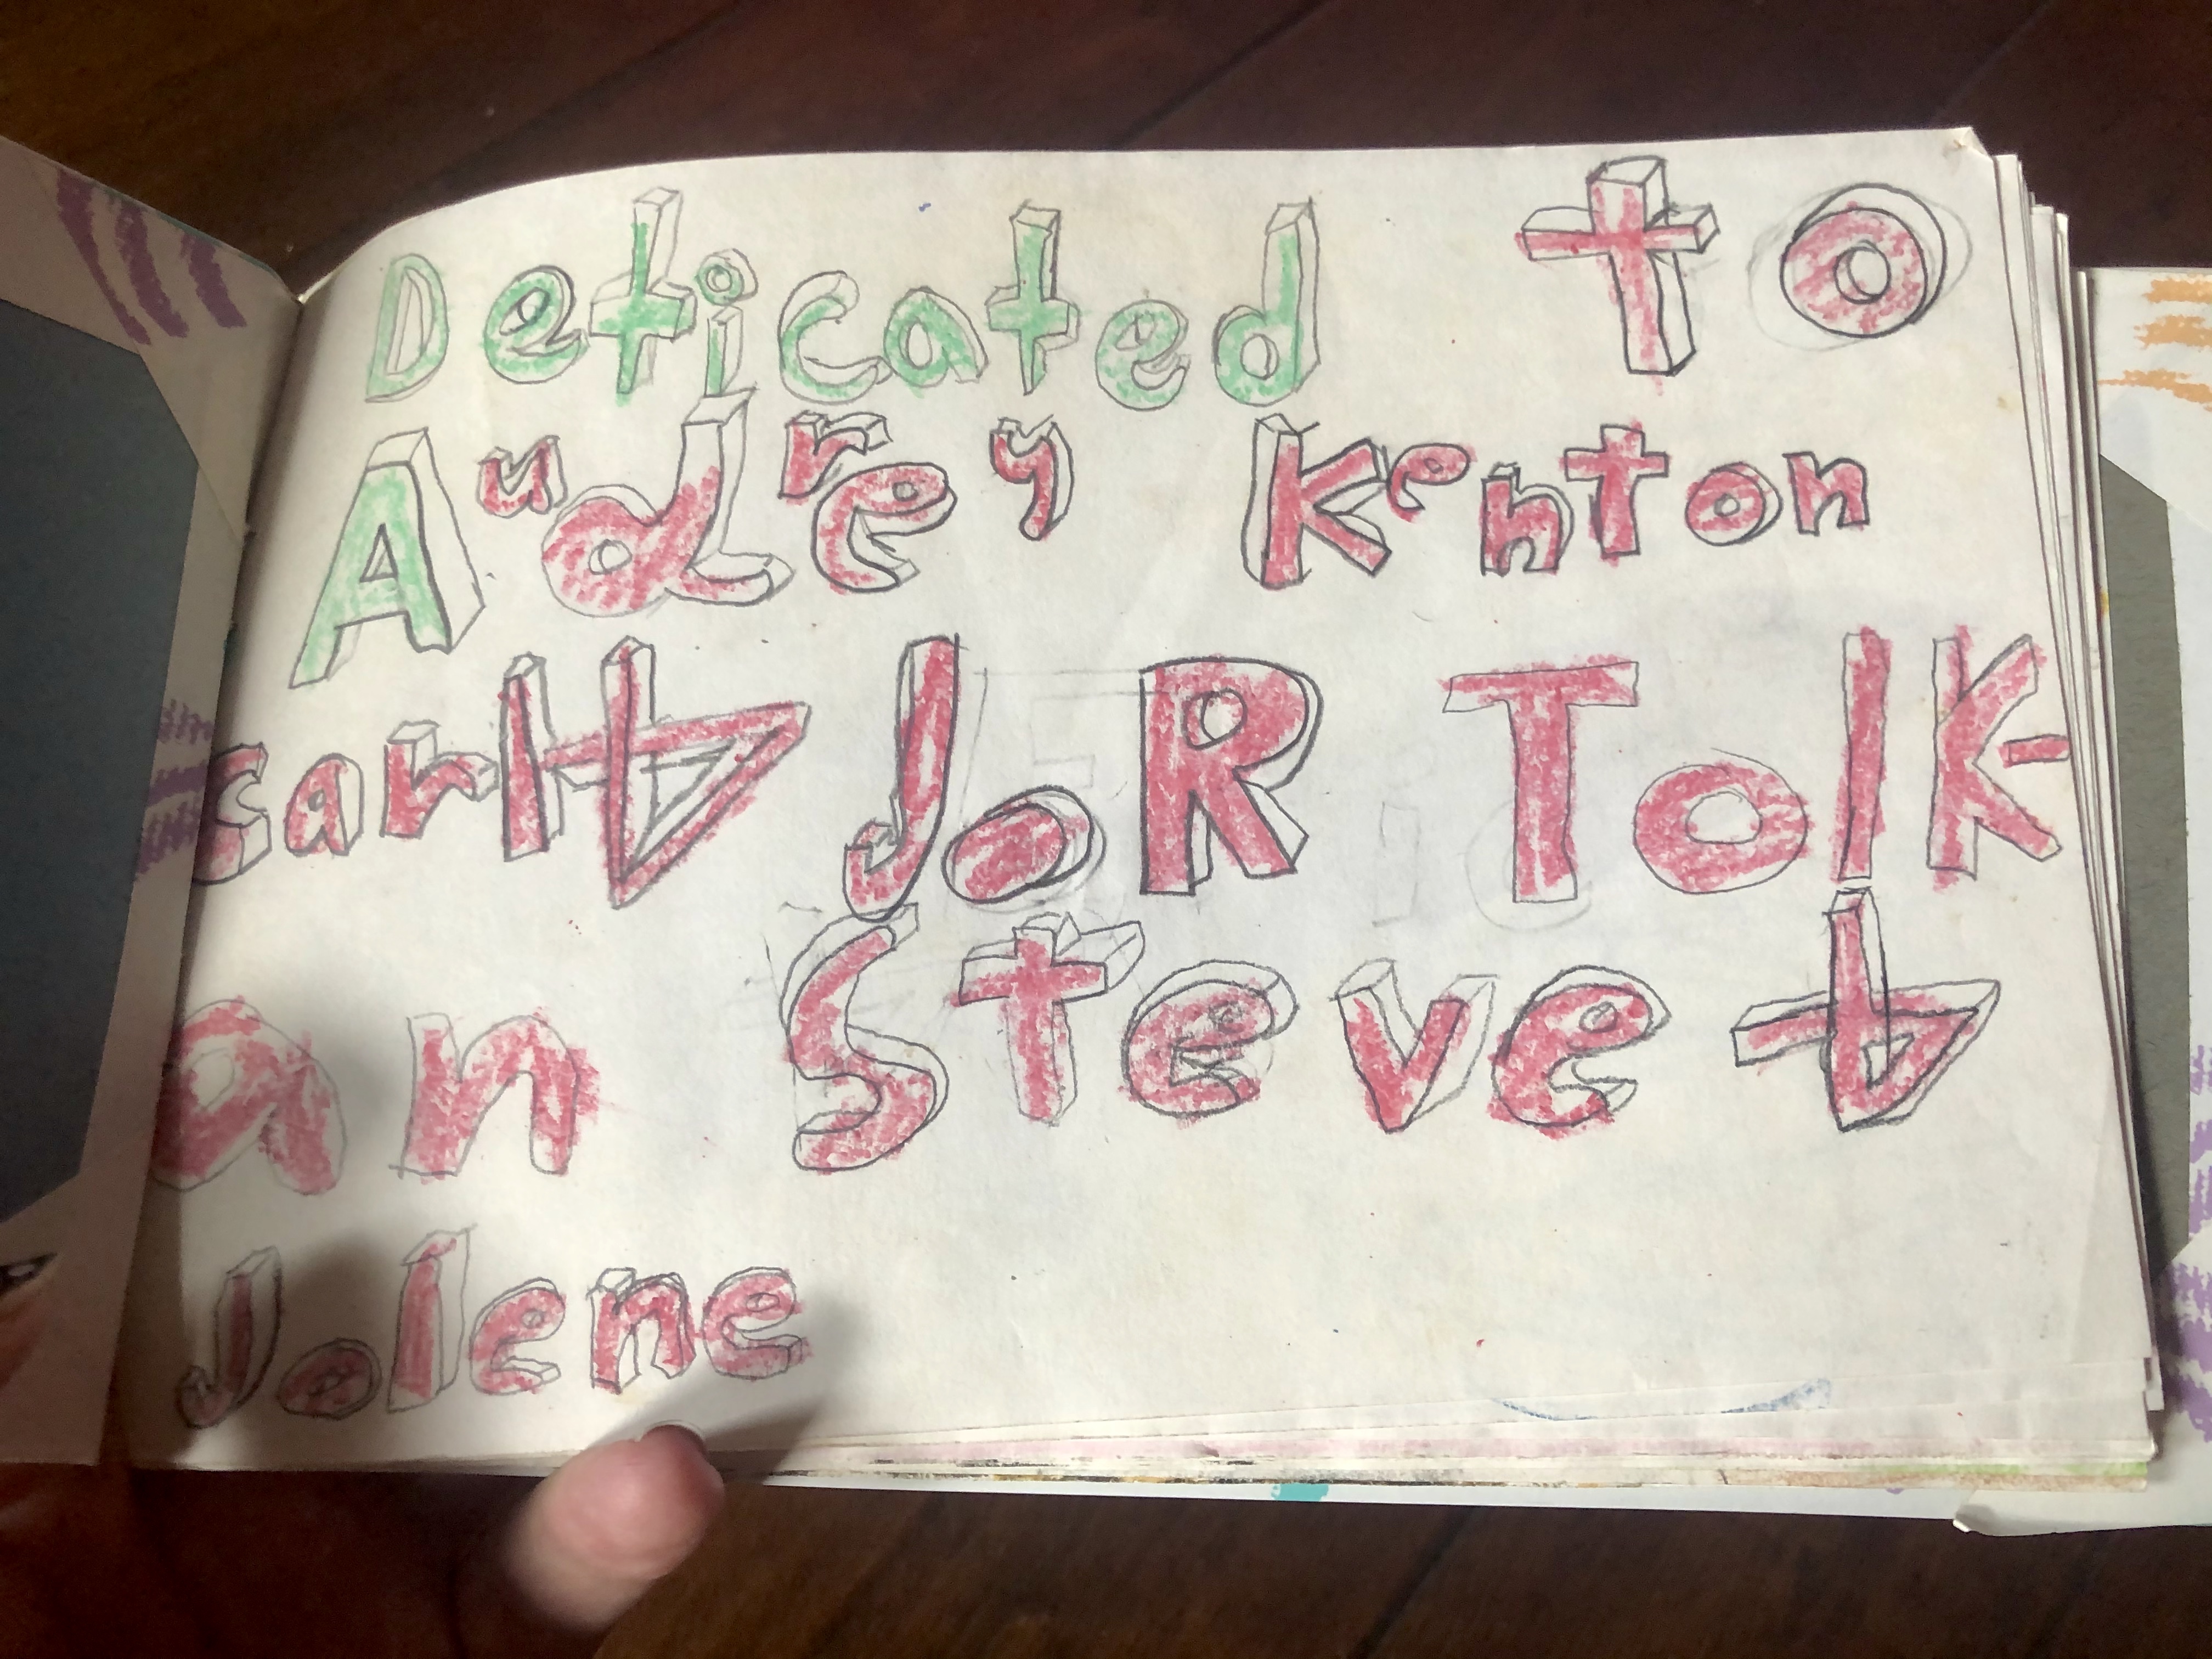 Deticated to
Audrey Kenton
carl JoR Tolk-
an Steve
Jolene